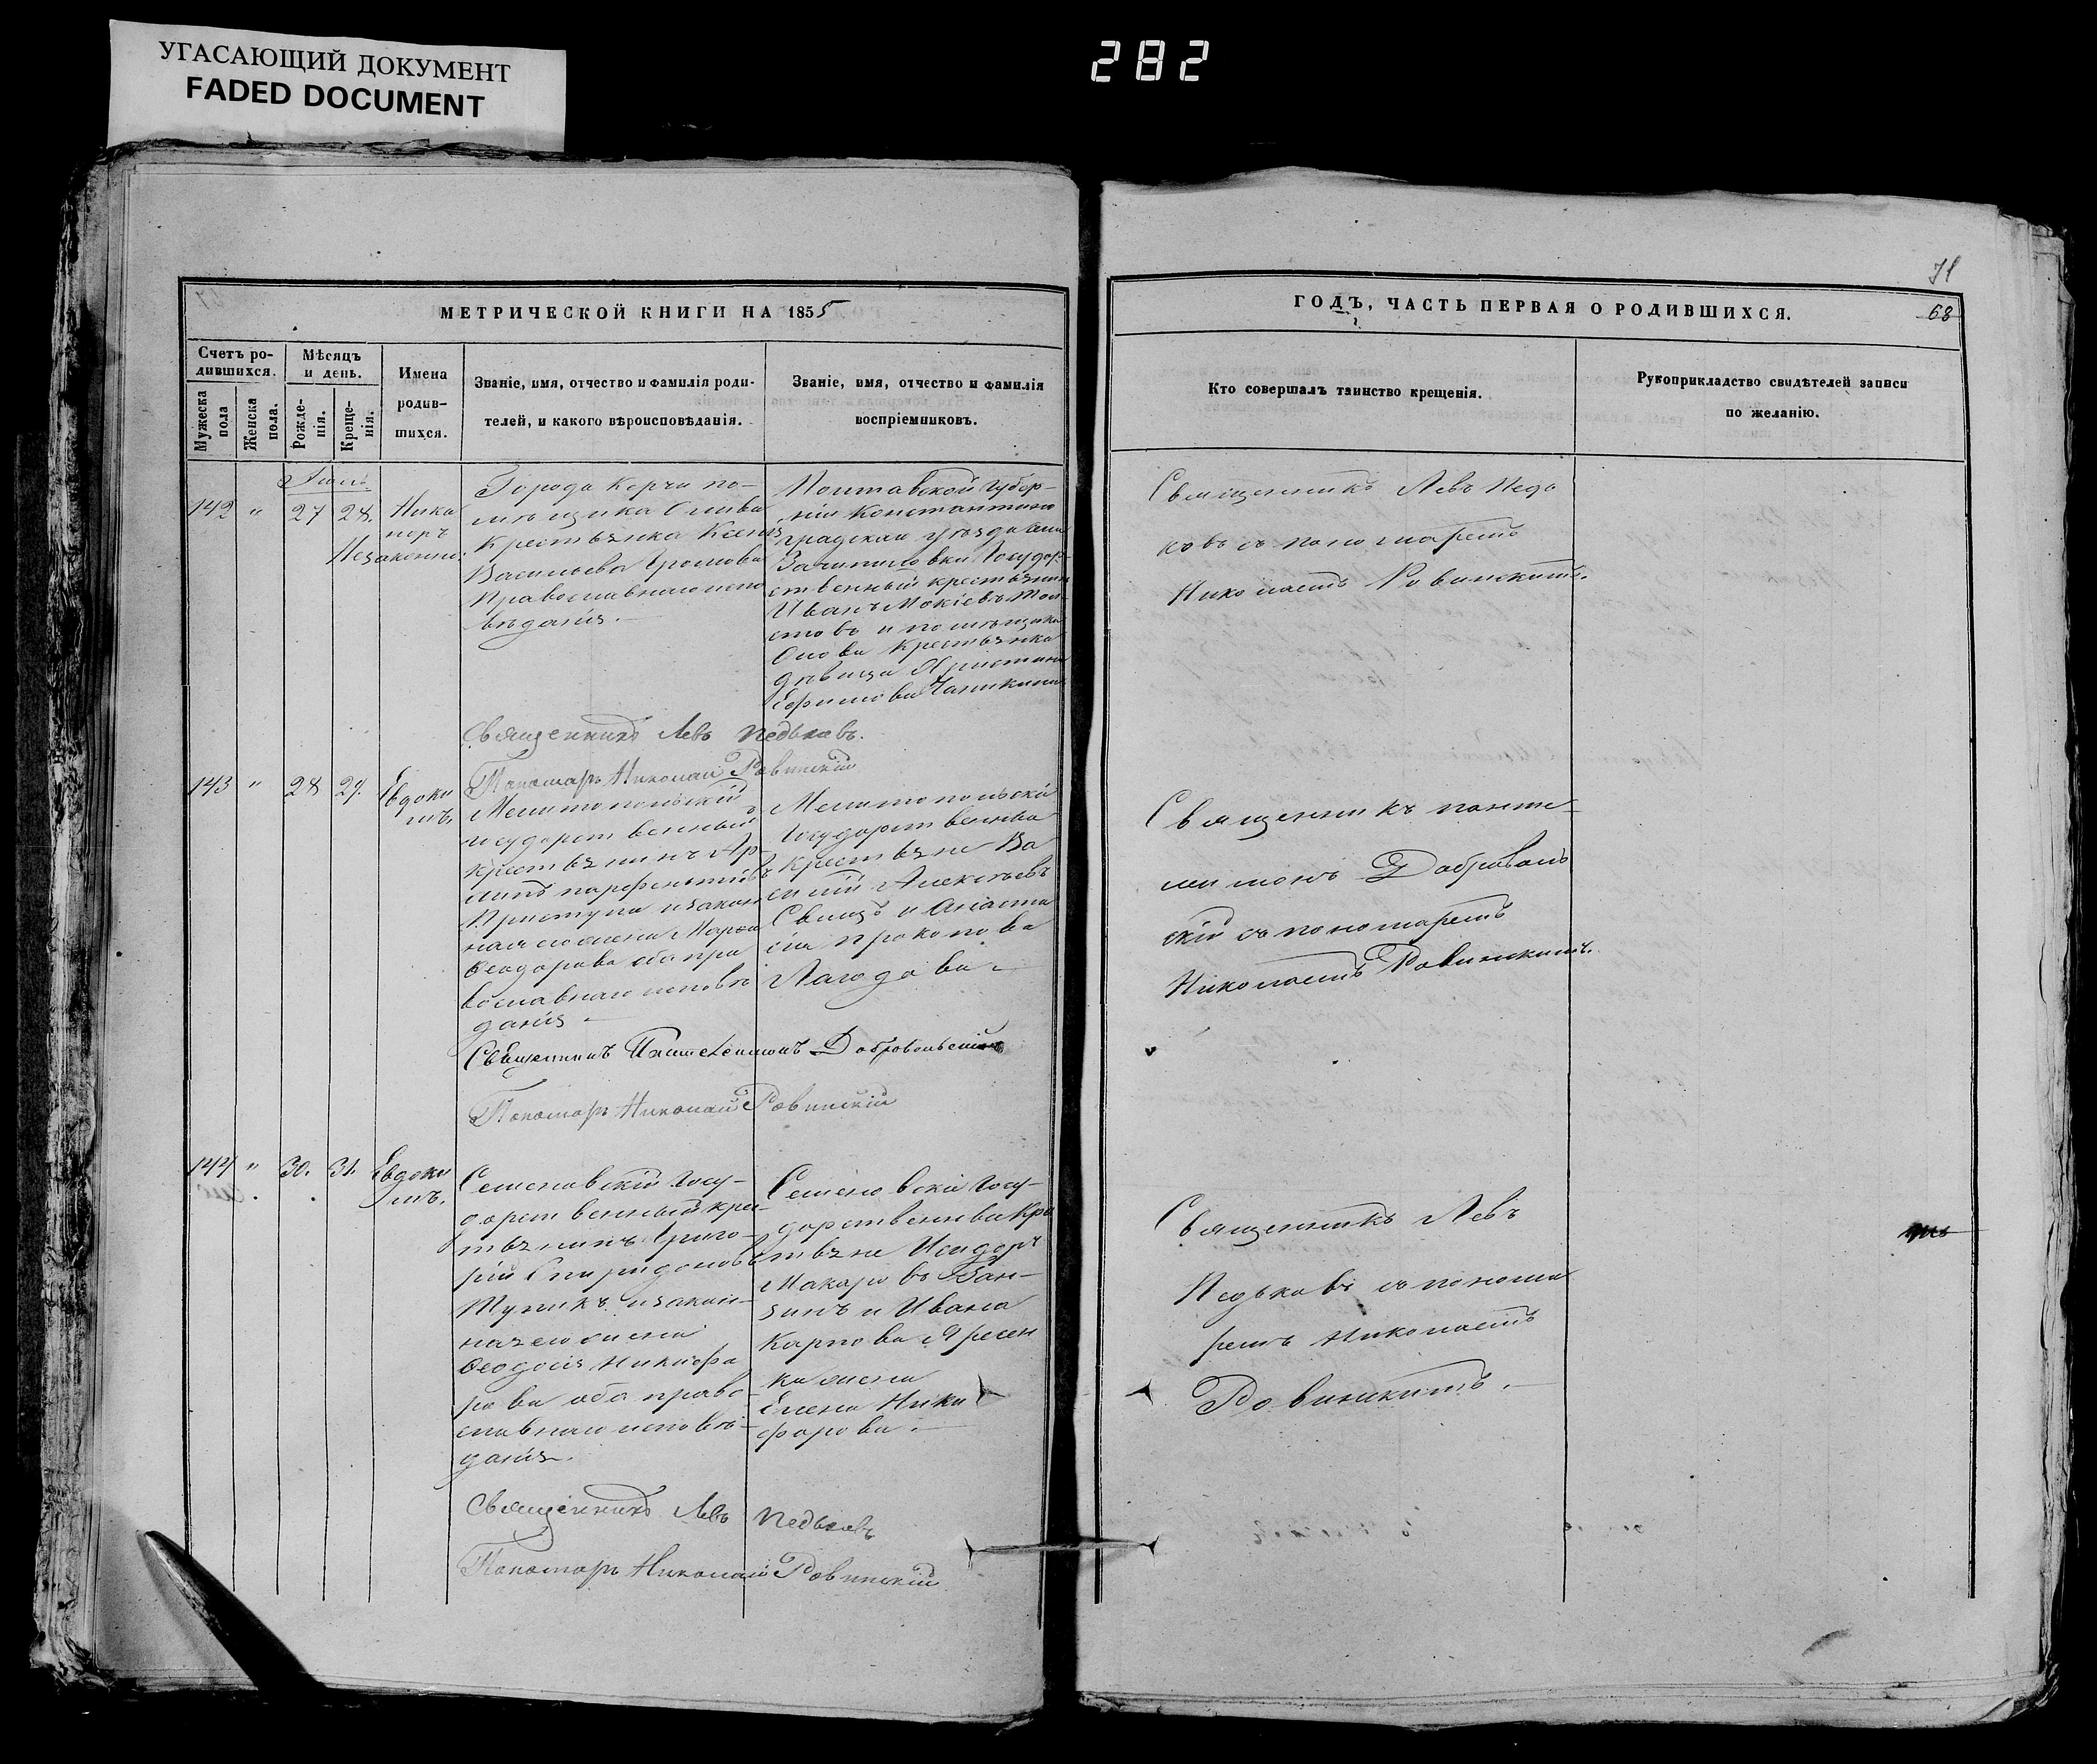 УГАСАЮЩИЙ ДОКУМЕНТ
FADED DOCUMENT
282
71
МЕТРИЧЕСКОЙ КНИГИ НА 1855
ГОДЪ, ЧАСТЬ ПЕРВАЯ О РОДИВШИХСЯ.
68
Счетъ ро-
дившихся.
Мужеска
пола
Женска
пола.
Мѣсяцъ
и день.
Рожде-
нія.
Креще-
нія.
Имена
родив-
шихся.
Званіе, имя, отчество и фамилія роди-
телей, и какого вѣроисповѣданія.
Званіе, имя, отчество и фамилія
воспріемниковъ.
Кто совершалъ таинство крещенія.
Рукоприкладство свидѣтелей записи
по желанію.
142 " 27 28.
Ника
норъ
Незаконно:
Города Керчи по-
мѣщика
крестьянка Ксенія
Васильева Громова
Православнаго испо
вѣданія.
Полтавской Губер-
ніи Константино
градскаго уѣзда
Зачепиловки Государ
ственный крестьянинъ
Иванъ Мокіевъ Тол
стовъ и помѣщика
крестьянка
дѣвица Христина
Ефимова
Священникъ Левъ Педь
ковъ съ пономаремъ
Николаемъ Ровинскимъ.
Священникъ Левъ Педьковъ.
Пономарь Николай Ровинскій
143 " 28 29.
Евдоки
мъ.
Мелитопольскій
государственный
крестьянинъ
Парфентіевъ
Приступа и закон
ная его жена Марѳа
Ѳеодорова оба пра
вославнаго исповѣ
данія
Мелитопольскіе
Государственные
крестьяне Ва
силій Алексѣевъ
и Анаста
сія Прокопова
Лагодова
Священникъ Панте-
леимонъ Добровольс
кій съ пономаремъ
Николаемъ Ровинскимъ.
Священникъ Пантелеимонъ Добровольскій
Пономарь Николай Ровинскій
144 " 30. 31.
Евдоки
мъ.
Семеновскій Госу-
дарственный крес-
тьянинъ Григо-
рій Спиридоновъ
Тупикъ и закон-
ная его жена
Ѳеодосія Никифо
рова оба право
славнаго исповѣ-
данія.
Семеновскіе Госу-
дарственные Крес
тьяне Исидоръ
Макаровъ
и Ивана
Карпова
ка жена
Елена Ники
форова.
Священникъ Левъ
Педьковъ съ понома
ремъ Николаемъ
Ровинскимъ.
Священникъ Левъ Педьковъ
Пономарь Николай Ровинскій